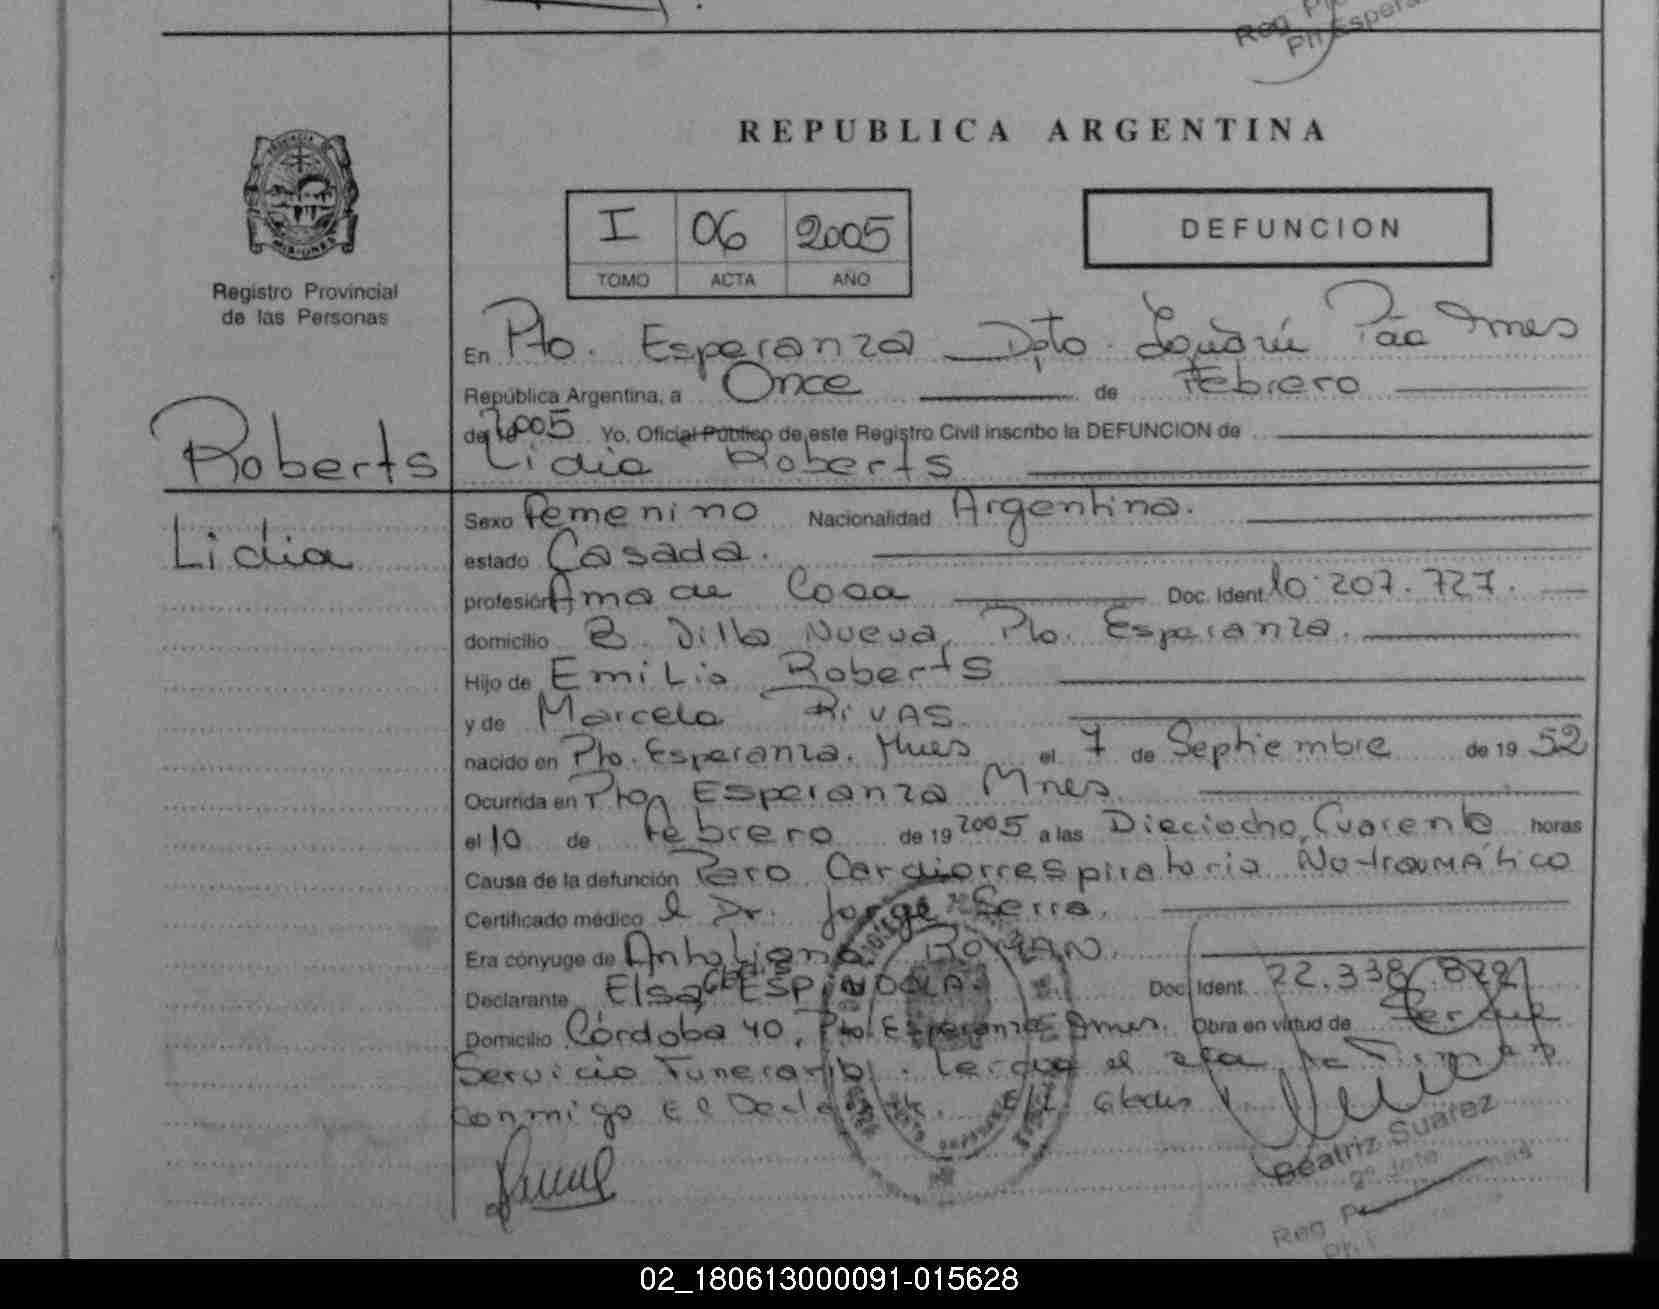 REPUBLICA ARGENTINA
I 06 2005
TOMO ACTA AÑO
DEFUNCION
Registro Provincial
de las Personas
En Pto. Esperanza Dpto. Iguazú Pcia Mnes
República Argentina, a Once de Febrero
de 2005 Yo, Oficial Público de este Registro Civil inscribo la DEFUNCION de
Roberts
Lidia Roberts
Lidia
Sexo Femenino Nacionalidad Argentina.
estado Casada.
profesión Ama de Casa Doc. Ident. 10.207.727.
domicilio B. Villa Nueva, Pto. Esperanza.
Hijo de Emilio Roberts
y de Marcela RIVAS
nacido en Pto. Esperanza. Mnes el 7 de Septiembre de 19 52
Ocurrida en Pto Esperanza Mnes
el 10 de Febrero de 19 2005 a las Dieciocho, Cuarenta horas
Causa de la defunción Paro Cardiorrespiratorio No traumático
Certificado médico el Dr. Jorge Serra.
Era cónyuge de ROMAN.
Declarante Elsa ESPINDOLA. Doc. Ident. 22.338.
Domicilio Córdoba 40, Pto. Esperanza Mnes. Obra en virtud de
Servicio Funerario. el acta
conmigo El
Beatriz Suarez
02_180613000091-015628